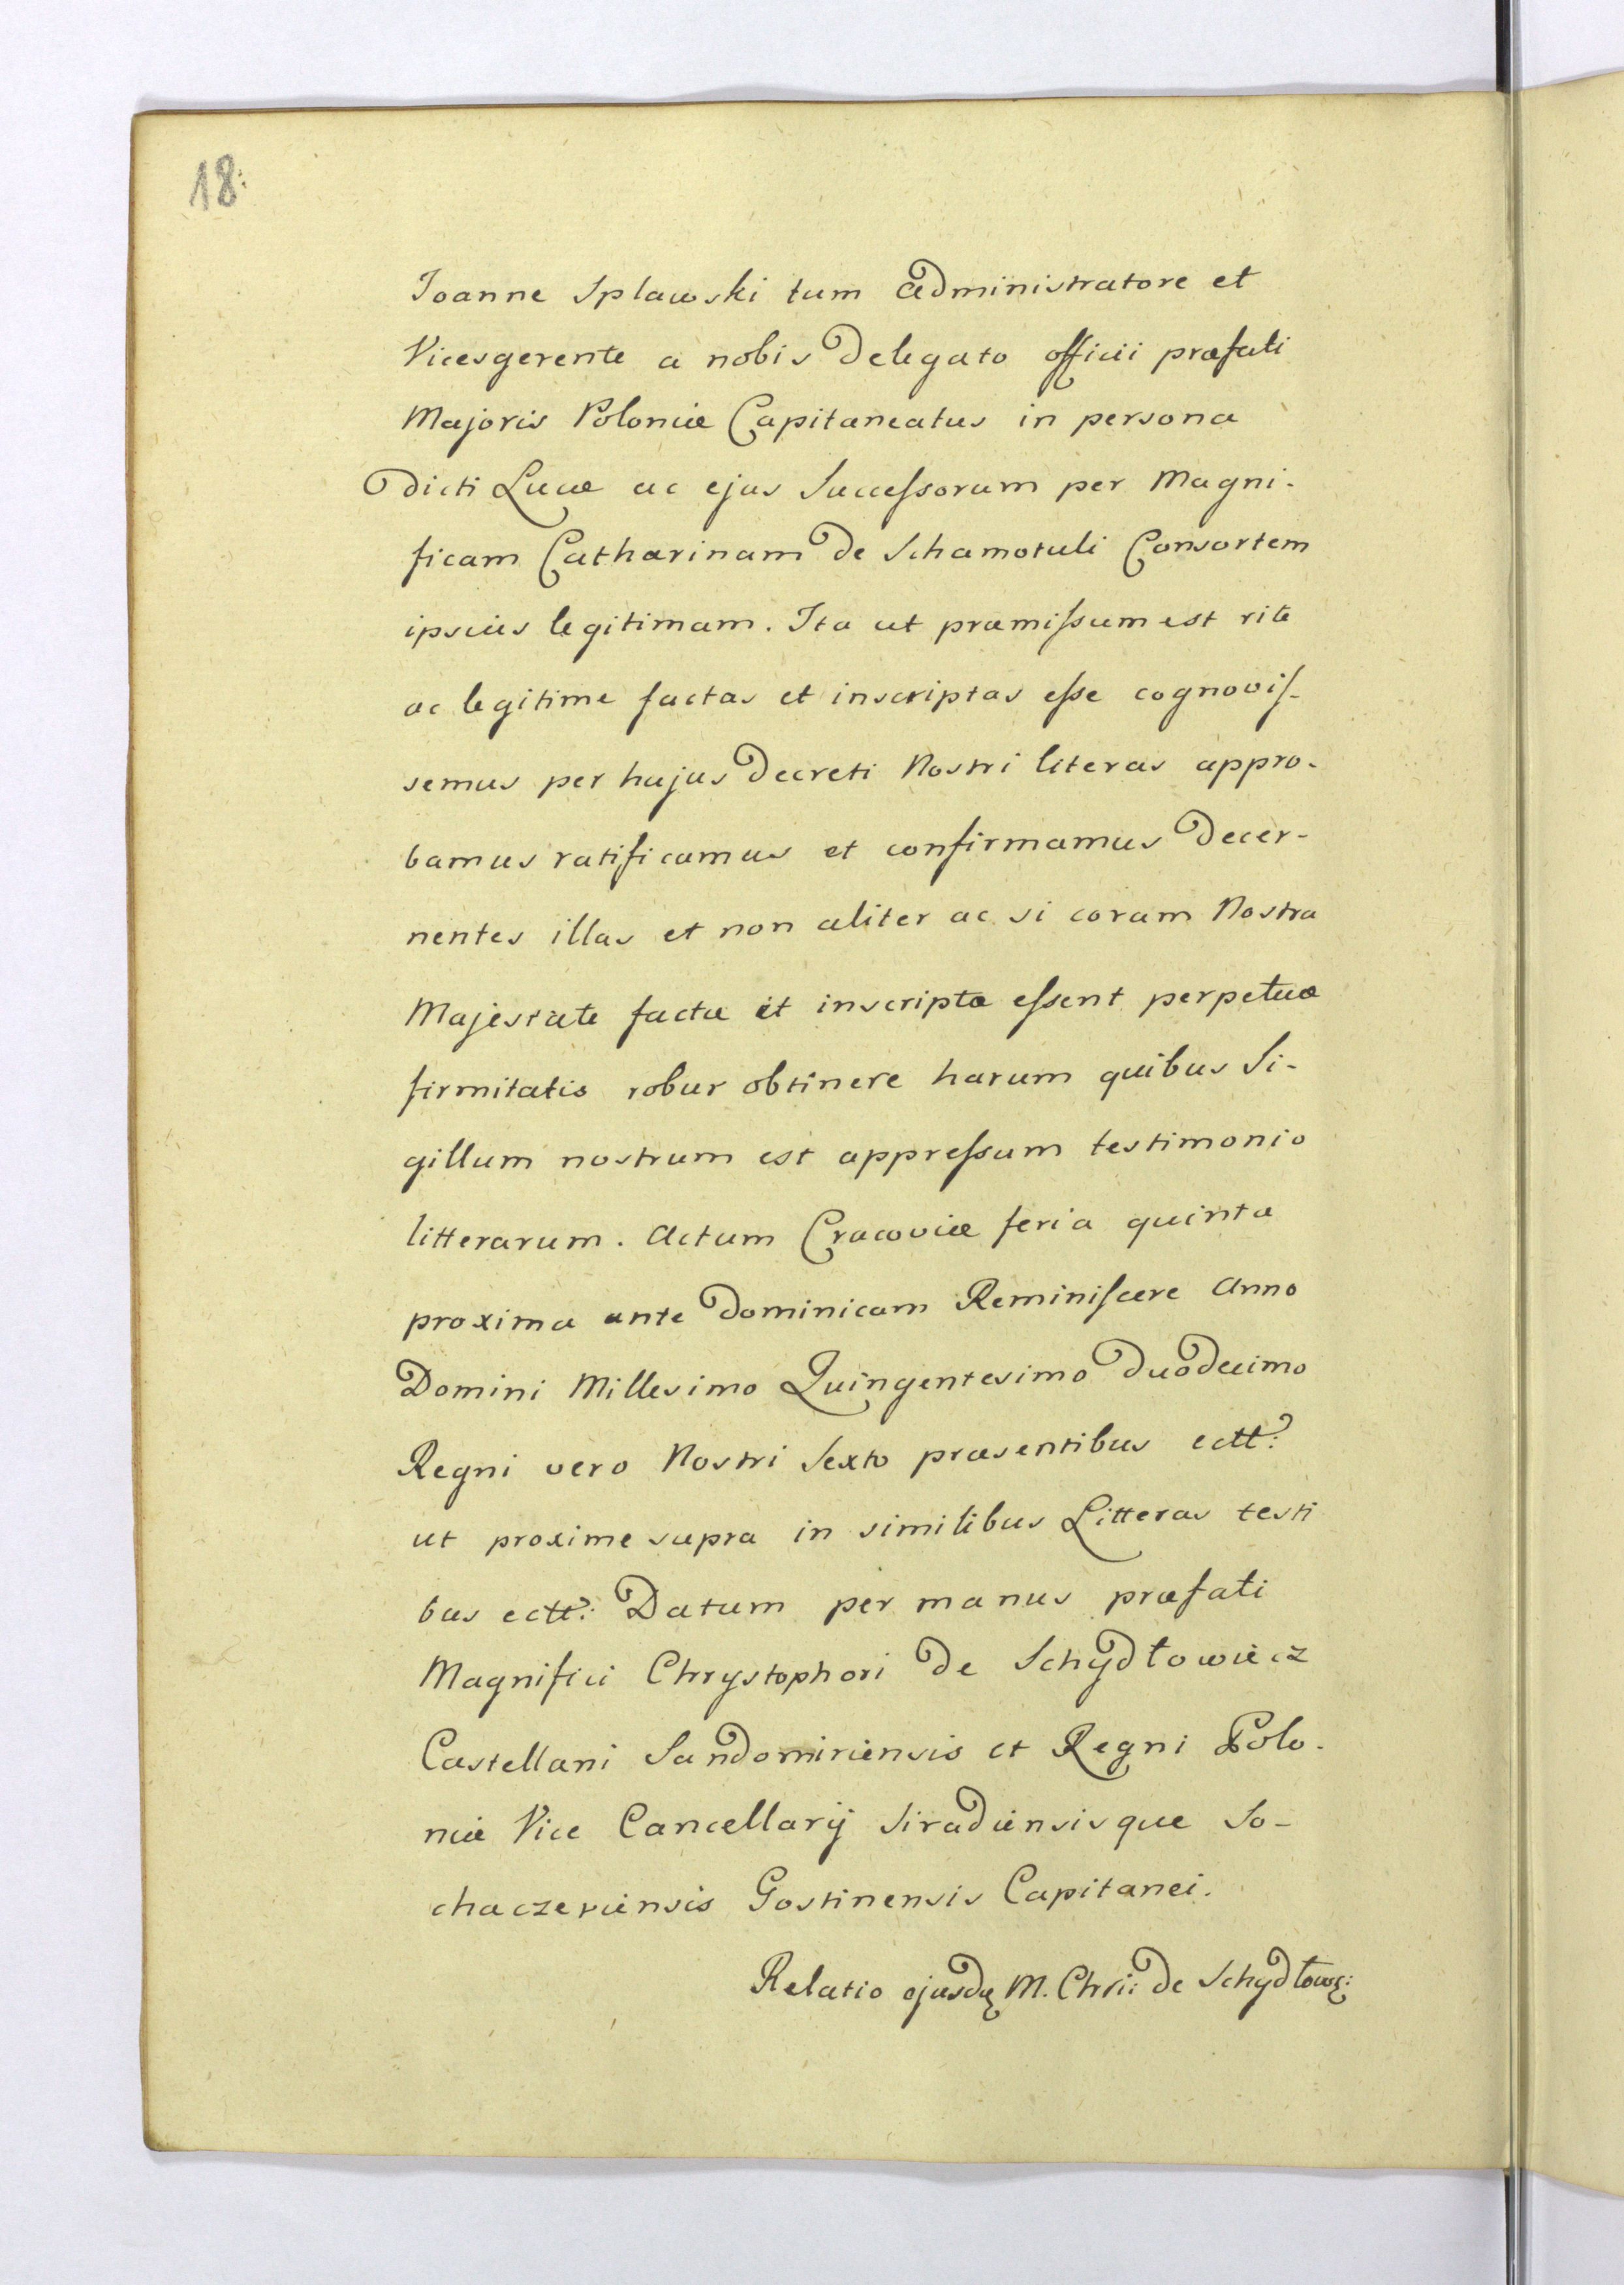 18:
Joanne Splawski tum Administratore et
Vicesgerente a nobis Delegato officii præfati
Majoris Poloniæ Capitaneatus in persona
Dicti Lucæ ac ejus Succeſsorum per Magni-
ficam Catharinam de Schamotuli Consortem
ipsius legitimam. Ita ut præmiſsum est rite
ac legitime factas et inscriptas eſse cognoviſ-
semus per hujus Decreti Nostri literas appro-
bamus ratificamus et confirmamus Decer-
nentes illas et non aliter ac si coram Nostra
Majestate factæ et inscriptæ eſsent perpetuæ
firmitatis robur obtinere harum quibus Si-
gillum nostrum est appreſsum testimonio
litterarum. Actum Cracoviæ feria quinta
proxima ante Dominicam Reminiſcere Anno
Domini Millesimo Quingentesimo Duodecimo
Regni vero Nostri Sexto præsentibus ectt:
ut proxime supra in similibus Litteras testi
bus ectt: Datum per manus præfati
Magnifici Chrystophori de Schydłowiecz
Castellani Sandomiriensis et Regni Polo-
niæ Vice Cancellarij Siradiensisque So-
chaczeviensis Gostinensis Capitanei.
Relatio ejusdę M. Chrii: de Schydłowę: